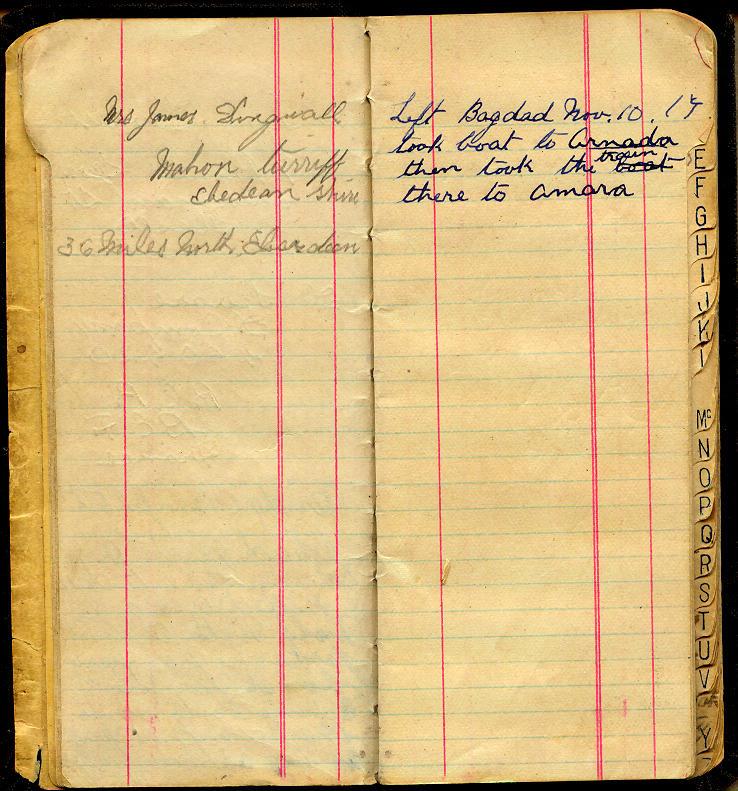 Mrs James. Dingwall
Mahon turriff
Ebedean Shire
36 Miles North. Eberdean
Left Bagdad Nov. 10. 17
took boat to Armada
then took the train boat
there to amara
E
F
G
H
I
J
K
L
Mc
N
O
P
Q
R
S
T
U
V
Y